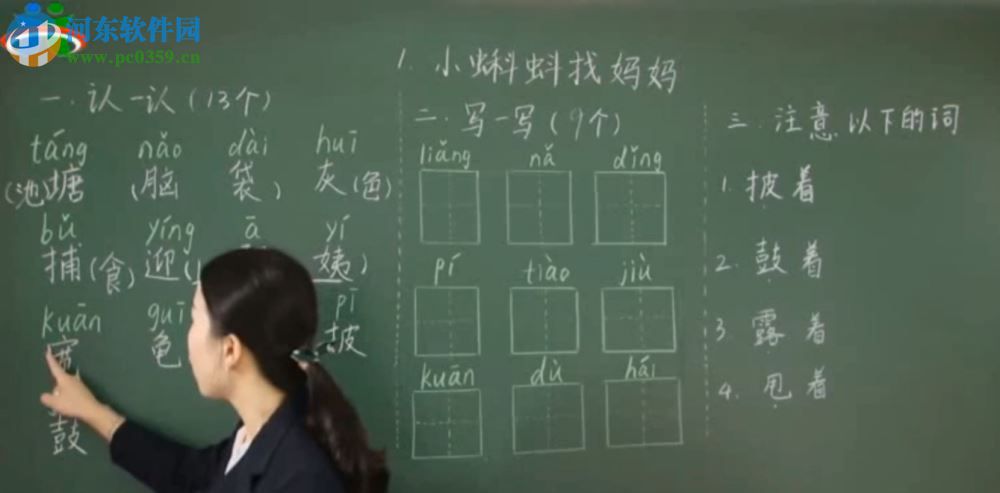 河东软件园
www.pc0359.cn
1. 小蝌蚪找妈妈
一.认一认(13个)
táng nǎo dài huī
(池)塘 (脑 袋) 灰(色)
bǔ yíng ā yí
捕(食) 迎( 姨)
kuān guī pī
宽 龟 披
鼓
二.写一写(9个)
liǎng nǎ dǐng
pí tiào jiù
kuān dù hái
三.注意以下的词
1.披着
2.鼓着
3.露着
4.甩着